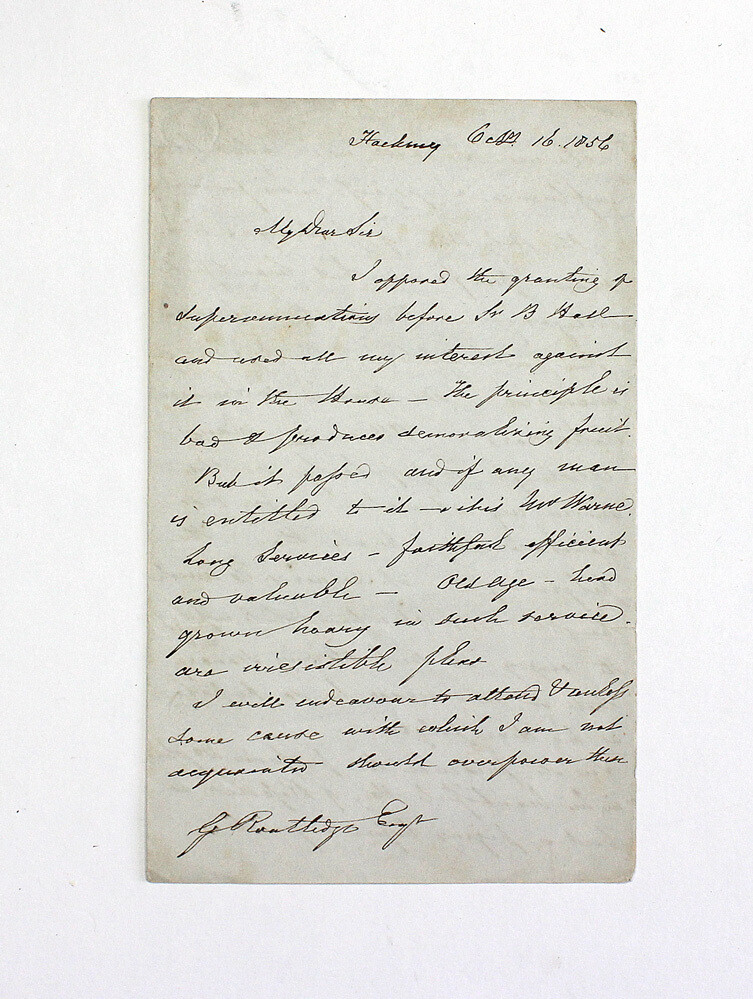 Hackney Octr. 16. 1856
My Dear Sir
I opposed the granting of
superannuations before Sr B Hall
and used all my interest against
it in the House – The principle is
bad & produces demoralizing fruit.
But it passed and if any man
is entitled to it – it is Mr Warne.
Long Services – faithful efficient
and valuable – Old Age – head
grown hoary in such service.
are irresistible pleas
I will endeavour to attend & unless
some cause with which I am not
acquainted should overpower them
G Routledge Esqr